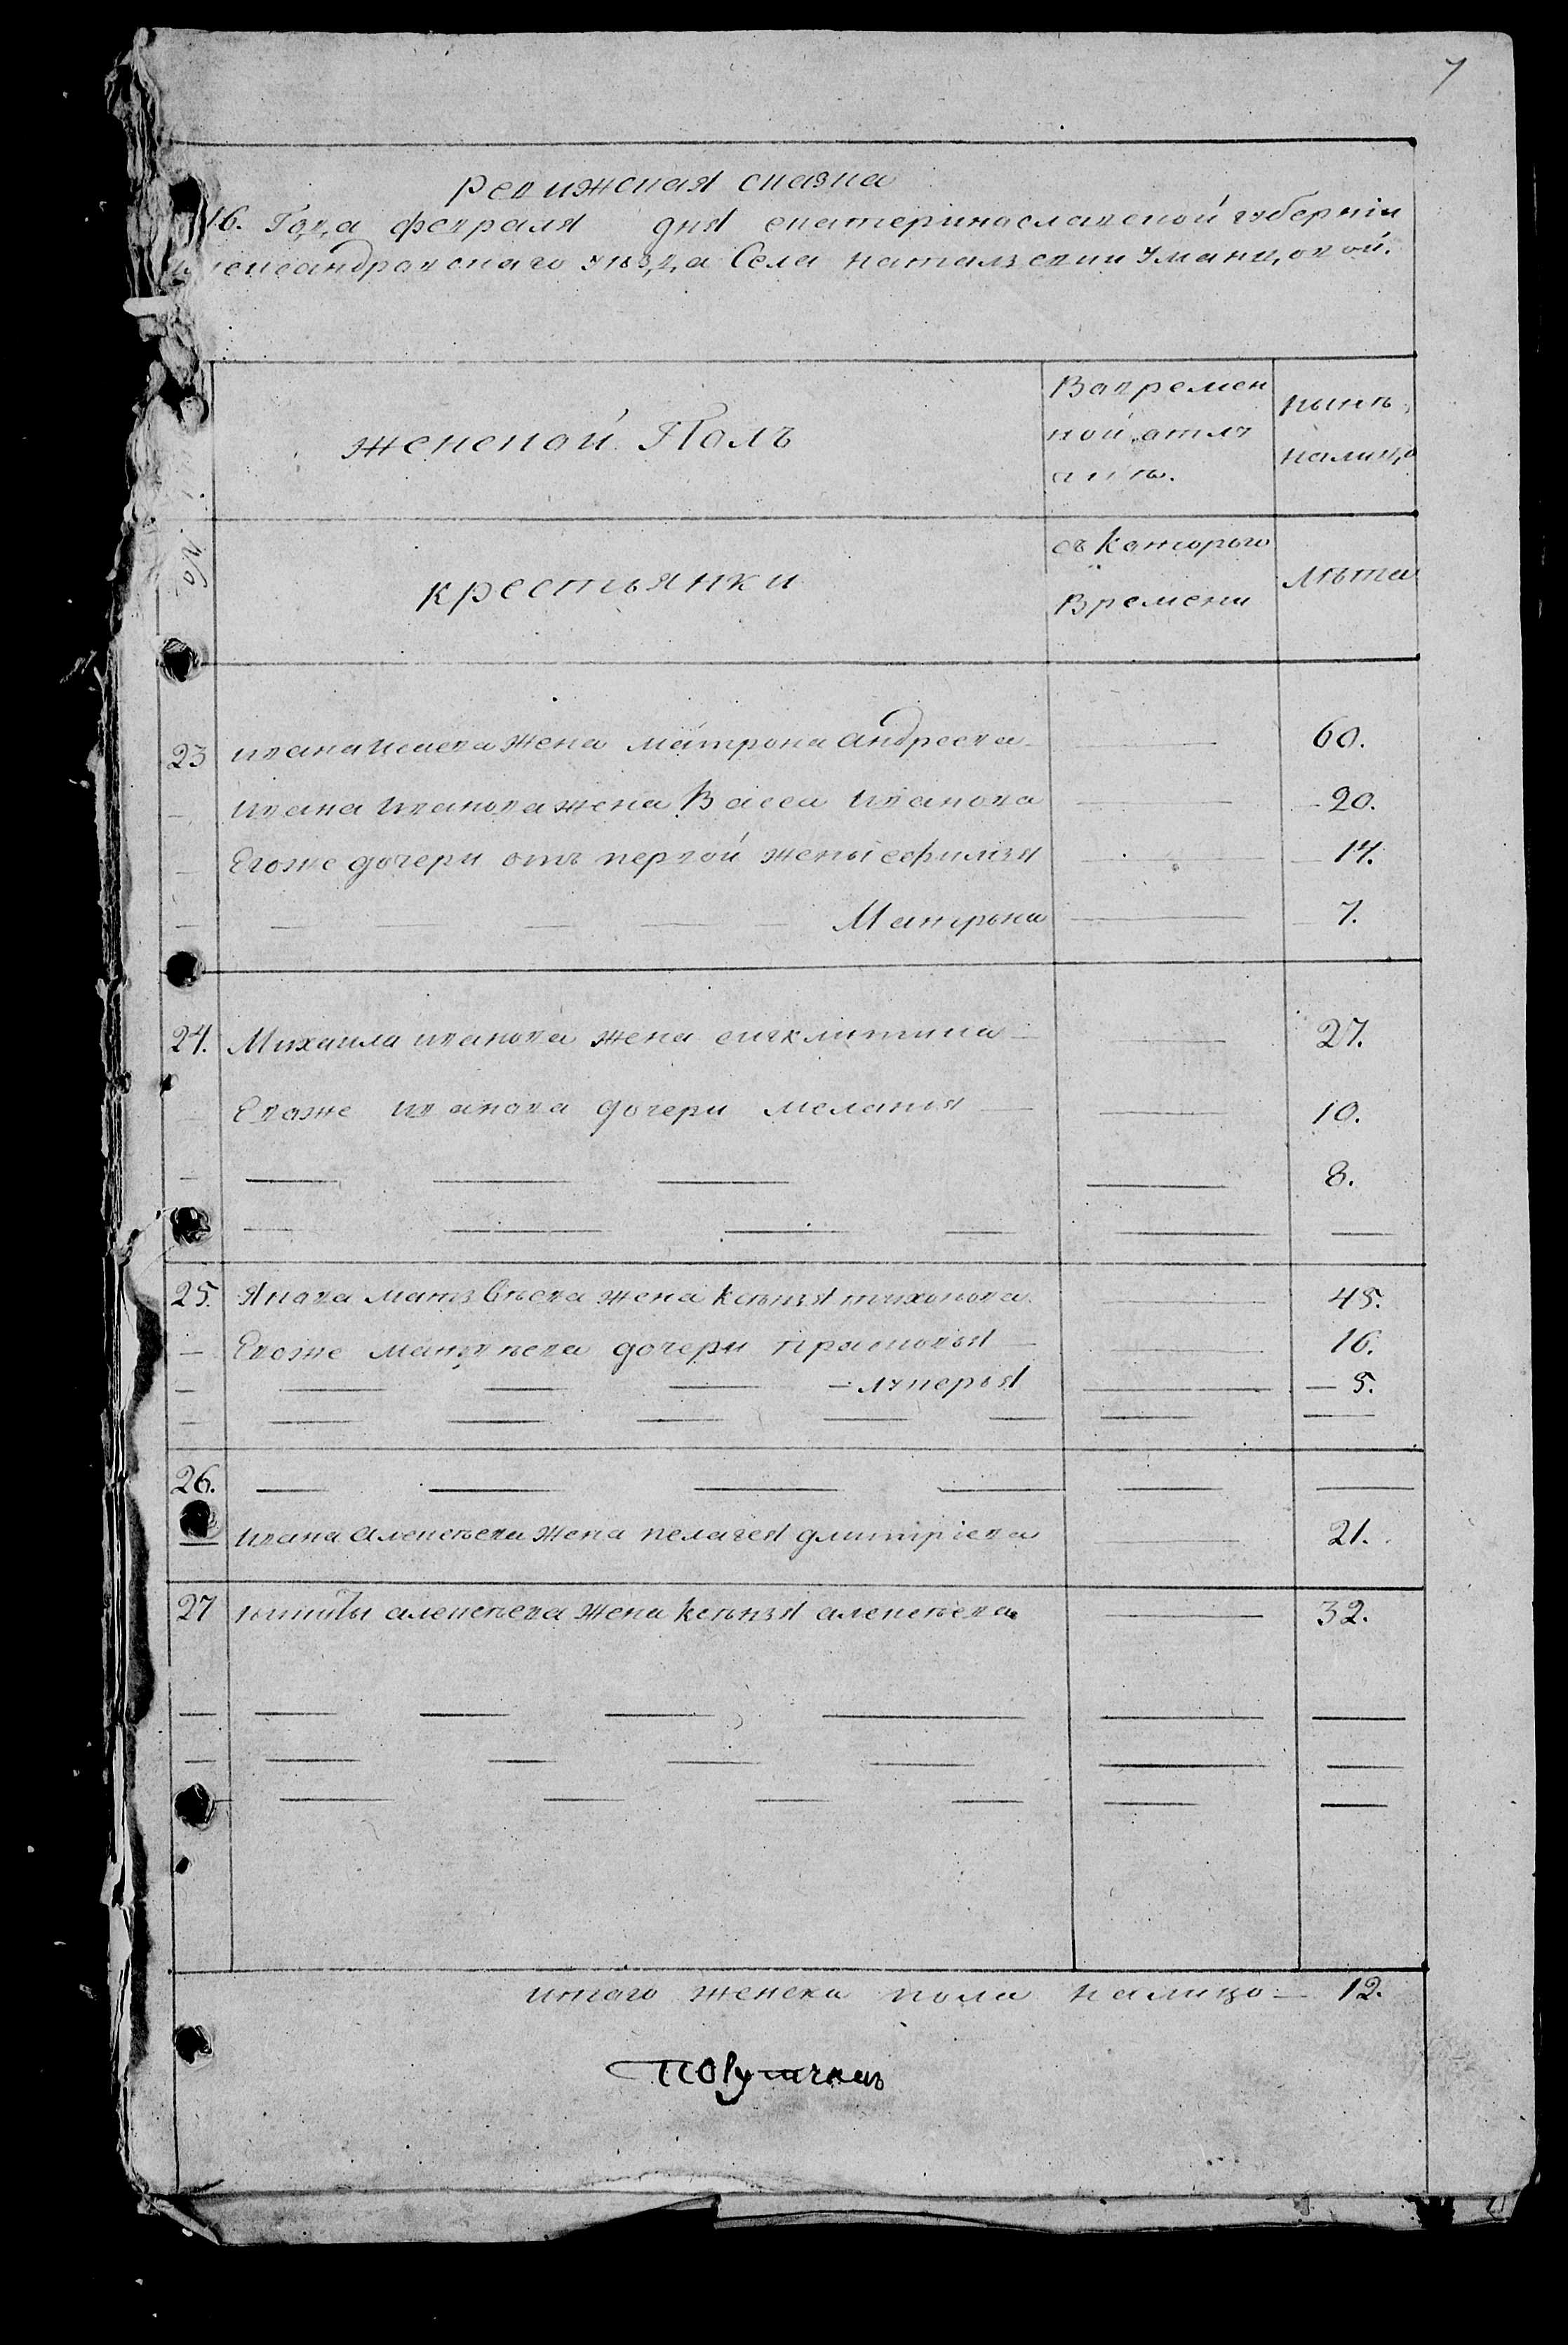 7
Ревижская сказка
16. Года февраля дня екатеринославской губернии
лександравскаго уѣзда Села натальевки Уманцовой.
женской Полъ
Вовремен
ной отлу
чкѣ.
нынѣ
налицо
№
крестьянки
съ Которого
Времени
лѣта
23 ивана исаева жена матрона андреева 60.
ивана иванова жена Васса иванова 20.
Егоже дочери отъ первой жены 14.
Матрона 7.
24. Михаила иванова жена 27.
Евоже иванова дочери мелания 10.
8.
25. Якова матвѣева жена ксѣнья тихонова 45.
Евоже матвѣева дочери прасковья 16.
лукерья 5.
26.
ивана алексѣева жена пелагея дмитріева 21.
27 никиты алексѣева жена ксѣнья алексѣева 32.
итого женска пола налицо 12.